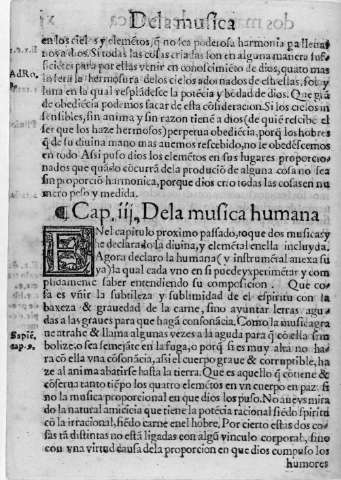 De la musica
en los cielos y elemẽtos, q̃ no sea poderosa harmonia pa lleuar
nos a dios. Si todas las cosas criadas son en alguna manera suf-
ficiẽtes para por ellas venir en conoscimiẽto de dios, quato mas
infera la hermosura delos cielos adornados de estrellas, sol y
luna en la qual resplãdesce la potẽcia y bõdad de dios. Que grã
de obediẽcia podemos sacar de esta cõsideracion. Si los cielos in
sensibles, sin anima y sin razon tienẽ a dios (de quiẽ recibẽ el
ser que los haze hermosos) perpetua obediẽcia, porq̃ los hõbres
q̃ de su diuina mano mas auemos rescebido, no le obedescemos
en todo Assi puso dios los elemẽtos en sus lugares proporcio-
nados que quãdo cõcurrẽ dela produciõ de alguna cosa no sea
sin proporciõ harmonica, porque dios crio todas las cosas en nu
mero peso y medida.
Ad Ro.
¶ Cap. iij. De la musica humana
ENel capitulo proximo passado, toque dos musicas y
he declarado la diuina, y elemẽtal enella incluyda.
Agora declaro la humana (y instrumẽtal anexa su
ya) la qual cada vno en si puede yxperimẽtar y com
plidamente saber entendiendo su composicion. Que co-
sa es vñir la subtileza y sublimidad de el espiritu con la
baxeza & grauedad de la carne, sino ayuntar letras agu-
das a las graues para que hagã consonãcia. Como la musica gra
ue atrahe & llama algunas vezes a la aguda para q̃ cõ ella sim
bolize, o sea semejãte en la fuga, o porq̃ si es muy alta no ha-
ra cõ ella vna cõsonãcia, assi el cuerpo graue & corruptible, ha
ze al anima abatirse hasta la tierra. Que es aquello q̃ cõtiene &
cõserua tanto tiẽpo los quatro elemẽtos en vn cuerpo en paz: si
no la musica proporcional en que dios los puso. No aueys mira
do la natural amicicia que tiene la potẽcia racional siẽdo spiritu
cõ la irracional, siẽdo carne en el hõbre. Por cierto estas dos co-
sas tã distintas no estã ligadas con algũ vinculo corporal, sino
con vna virtud causa de la proporcion en que dios compuso los
Sapiẽ.
cap. 9.
humores